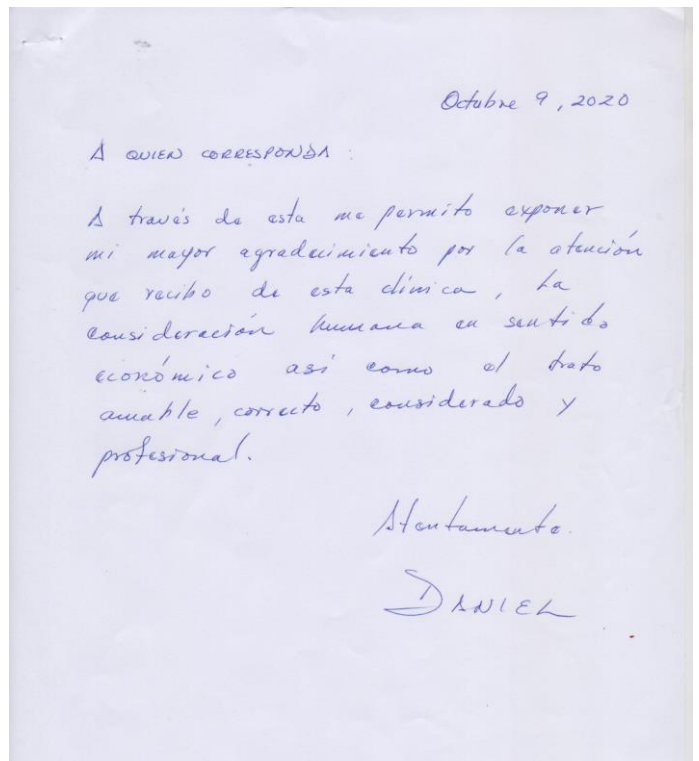 Octubre 9, 2020
A QUIEN CORRESPONDA :
A través de esta me permito exponer
mi mayor agradecimiento por la atención
que recibo de esta clínica, La
consideración humana en sentido
económico así como el trato
amable, correcto, considerado y
profesional.
Atentamente.
DANIEL